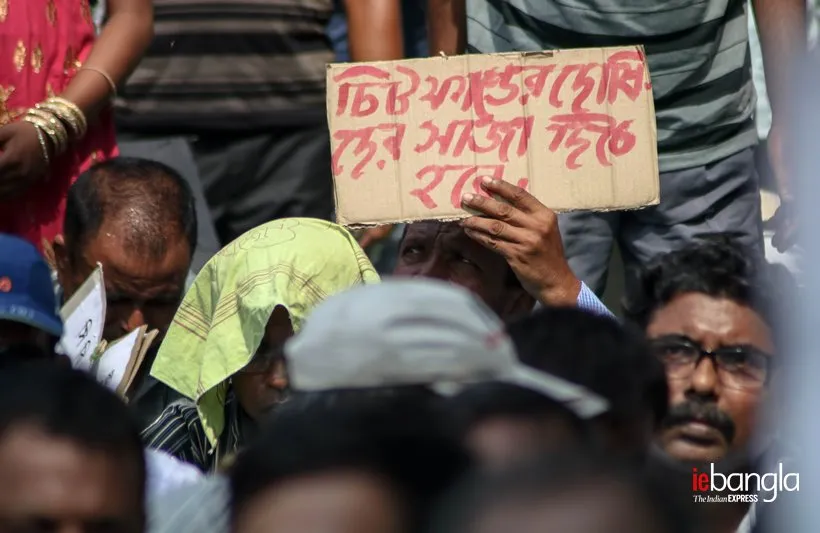 চিট ফান্ডের দোষি
দের সাজা দিতে
হবে
iebangla
The Indian EXPRESS